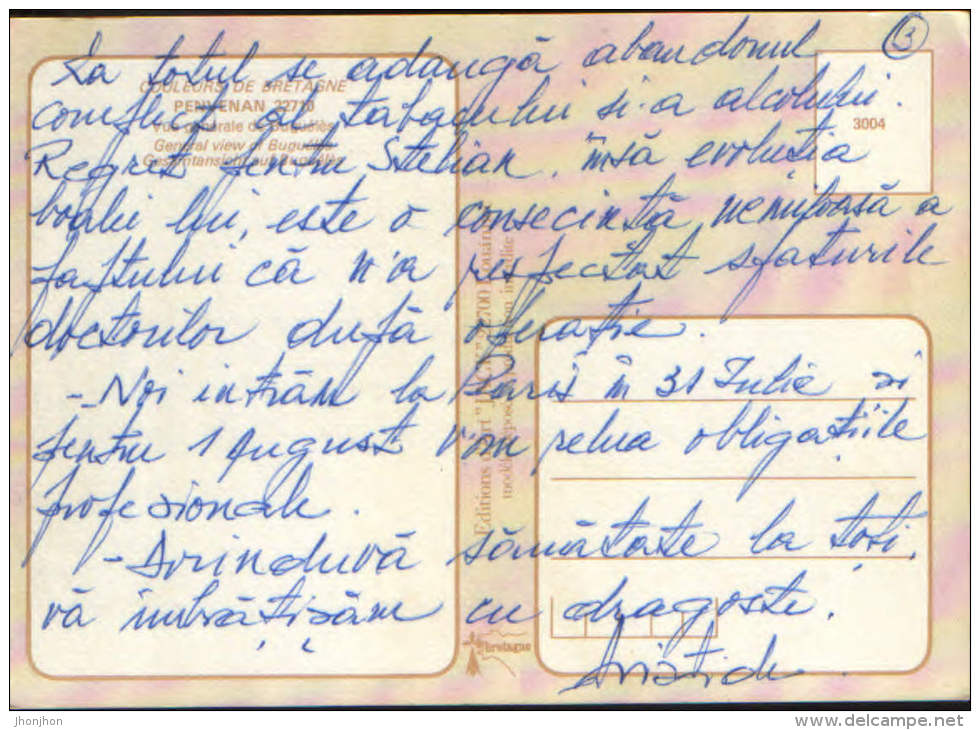 3
La totul se adaugă abandonul
complect al tabacului si-a alcolului.
Regret pentru Stelian, însă evoluția
boalei lui, este o consecință nemiloasă a
faptului că n'a respectat sfaturile
doctorilor după operație.
- Noi intrăm la Paris în 31 Iulie și
pentru 1 August vom relua obligațiile
profesionale.
- Dorinduvă sănătate la toți,
vă îmbrățișăm cu dragoste.
Aristide
COULEURS DE BRETAGNE
PENVENAN 22710
Vue générale de Buguélès
General view of Buguélès
Gesamtansicht auf Buguélès
3004
bretagne
jhonjhon
www.delcampe.net